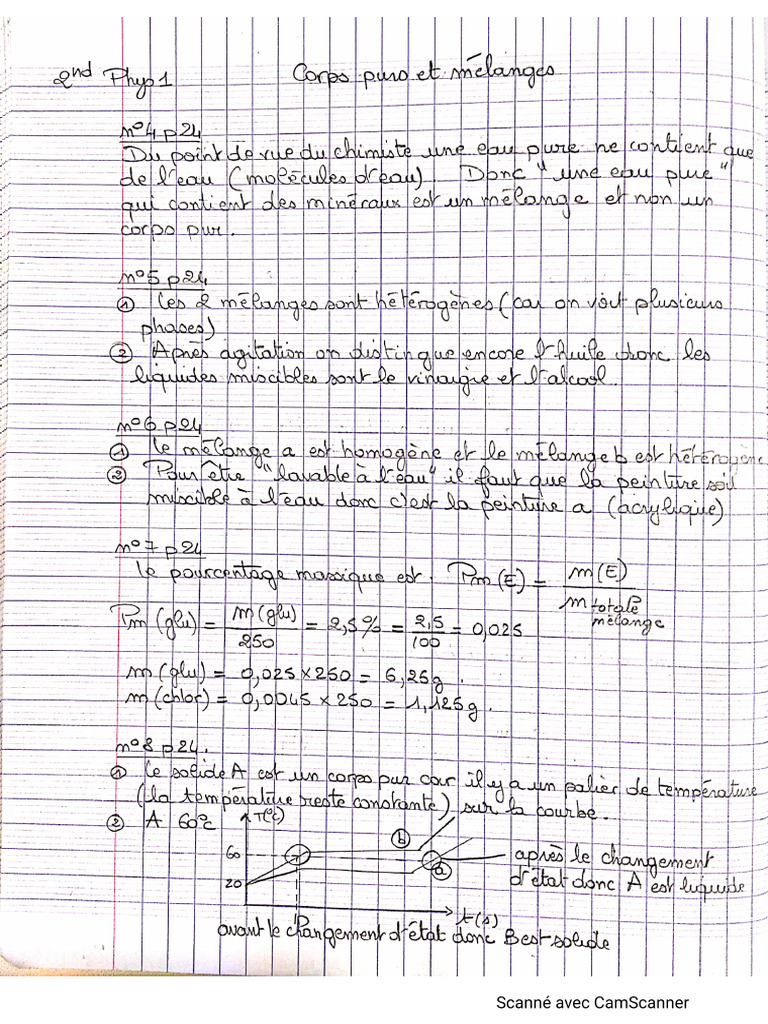 2nd Phys 1
Corps purs et mélanges
n°4 p24
Du point de vue du chimiste une eau pure ne contient que
de l'eau (molécules d'eau). Donc "une eau pure"
qui contient des minéraux est un mélange et non un
corps pur.
n°5 p24
① Les 2 mélanges sont hétérogènes (car on voit plusieurs
phases)
② Après agitation on distingue encore l'huile donc les
liquides miscibles sont le vinaigre et l'alcool.
n°6 p24
① le mélange a est homogène et le mélange b est hétérogène
② Pour être "lavable à l'eau" il faut que la peinture soit
miscible à l'eau donc c'est la peinture a (acrylique)
n°7 p24
le pourcentage massique est. Pm(E) = m(E) / m totale mélange
Pm(glu) = m(glu) / 250 = 2,5% = 2,5 / 100 = 0,025
m(glu) = 0,025 × 250 = 6,25g.
m(chlor) = 0,0045 × 250 = 1,125g.
n°8 p24.
① le solide A est un corps pur car il y a un palier de température
(la température reste constante) sur la courbe.
② A 60°C
T(°C)
60
20
ⓑ
ⓐ
après le changement
d'état donc A est liquide
t(s)
avant le changement d'état donc B est solide
Scanné avec CamScanner